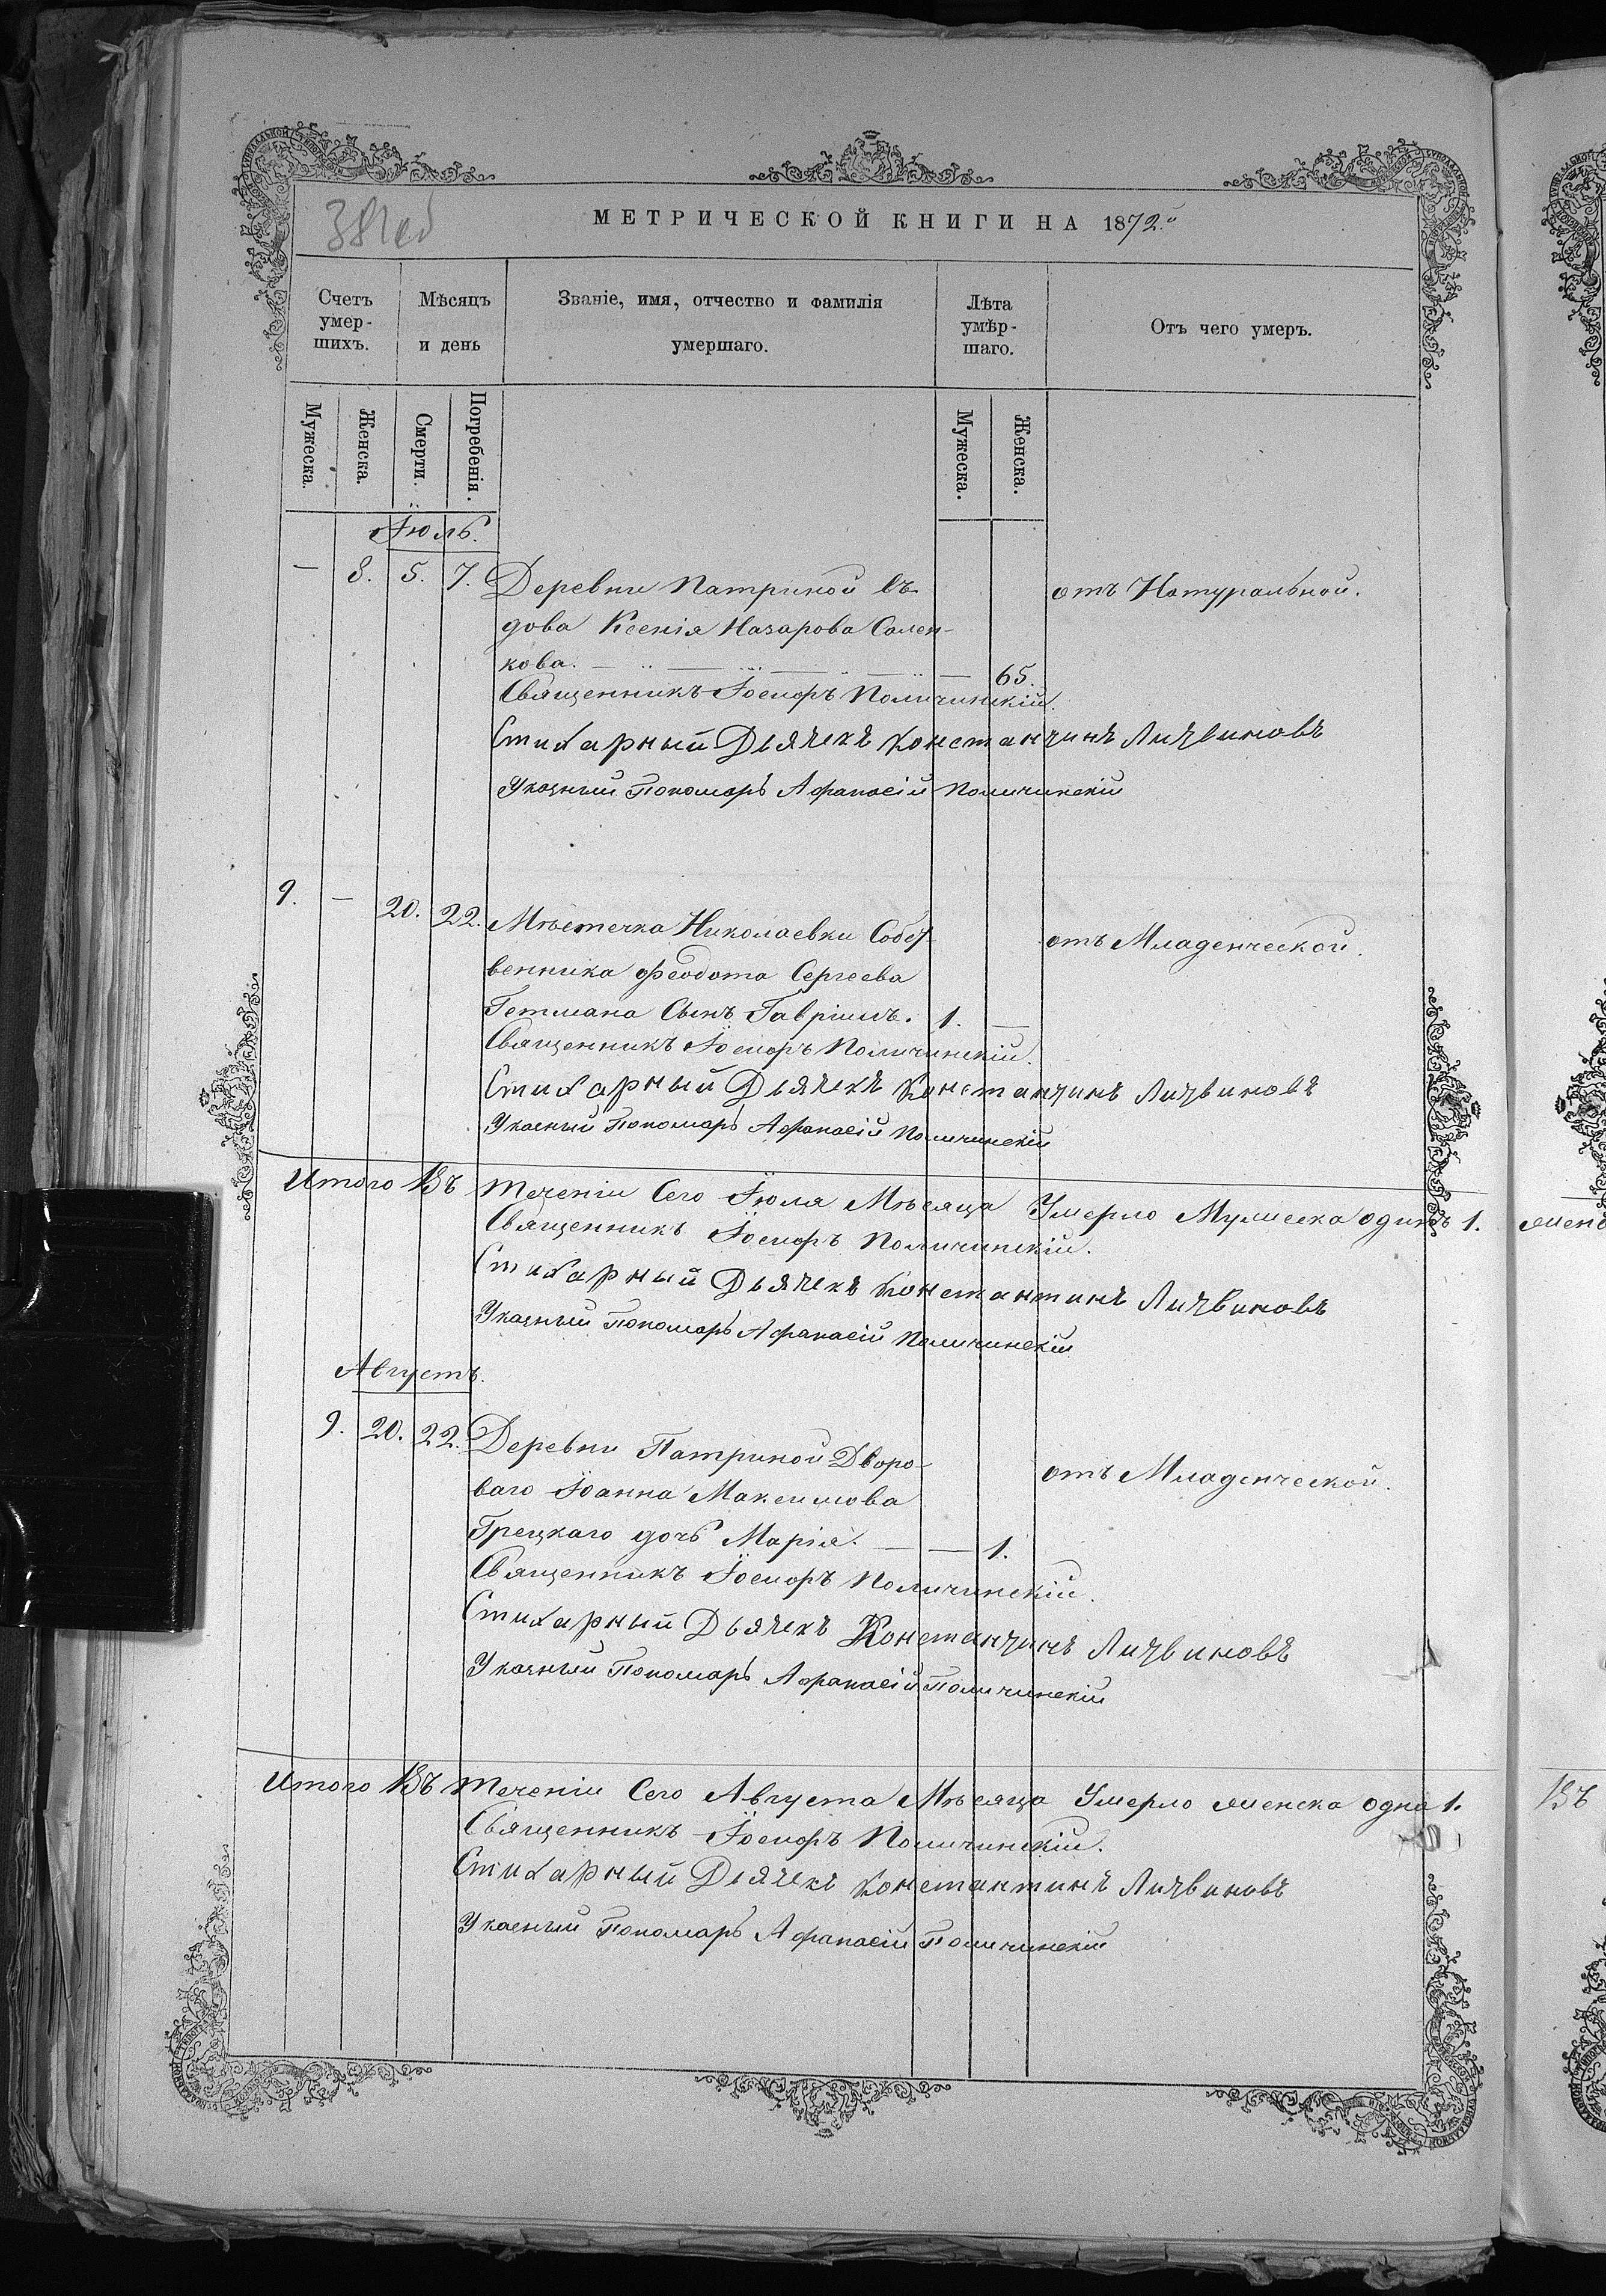 381 об
МЕТРИЧЕСКОЙ КНИГИ НА 1872й
Счетъ умер-шихъ.
Мѣсяцъ и день
Званіе, имя, отчество и фамилія умершаго.
Лѣта умѣр-шаго.
Отъ чего умеръ.
Мужеска. Женска. Смерти. Погребенія. Мужеска. Женска.
Іюль.
— 8. 5. 7. Деревни Патриной въ отъ Натуральной.
дова Ксенія Назарова Сален-
кова. — 65.
Священникъ Іосифъ Поличинскій.
Стихарный Дьячекъ Константинъ Литвиновъ
Указный Пономарь Афанасій Поличинскій
9. — 20. 22. Мѣстечка Николаевки Собст отъ Младенческой.
венника Феодота Сергеева
Гетмана Сынъ Гавріилъ. 1. —
Священникъ Іосифъ Поличинскій.
Стихарный Дьячекъ Константинъ Литвиновъ
Указный Пономарь Афанасій Поличинскій
Итого Въ теченіи Сего Іюля Мѣсяца Умерло Мужеска одинъ 1. женс
Священникъ Іосифъ Поличинскій.
Стихарный Дьячекъ Константинъ Литвиновъ
Указный Пономарь Афанасій Поличинскій
Августъ.
9. 20. 22. Деревни Патриной Дворо- отъ Младенческой.
ваго Іоанна Максимова
Грецкаго дочь Марія. — — 1.
Священникъ Іосифъ Поличинскій.
Стихарный Дьячекъ Константинъ Литвиновъ
Указный Пономарь Афанасій Поличинскій
Итого Въ теченіи Сего Августа Мѣсяца Умерло женска одна 1. Въ
Священникъ Іосифъ Поличинскій.
Стихарный Дьячекъ Константинъ Литвиновъ
Указный Пономарь Афанасій Поличинскій